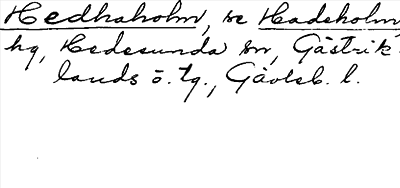 Hedhaholm, se Hadeholm
hg, Hedesunda sn, Gästrik-
lands ö. tg., Gävleb. l.